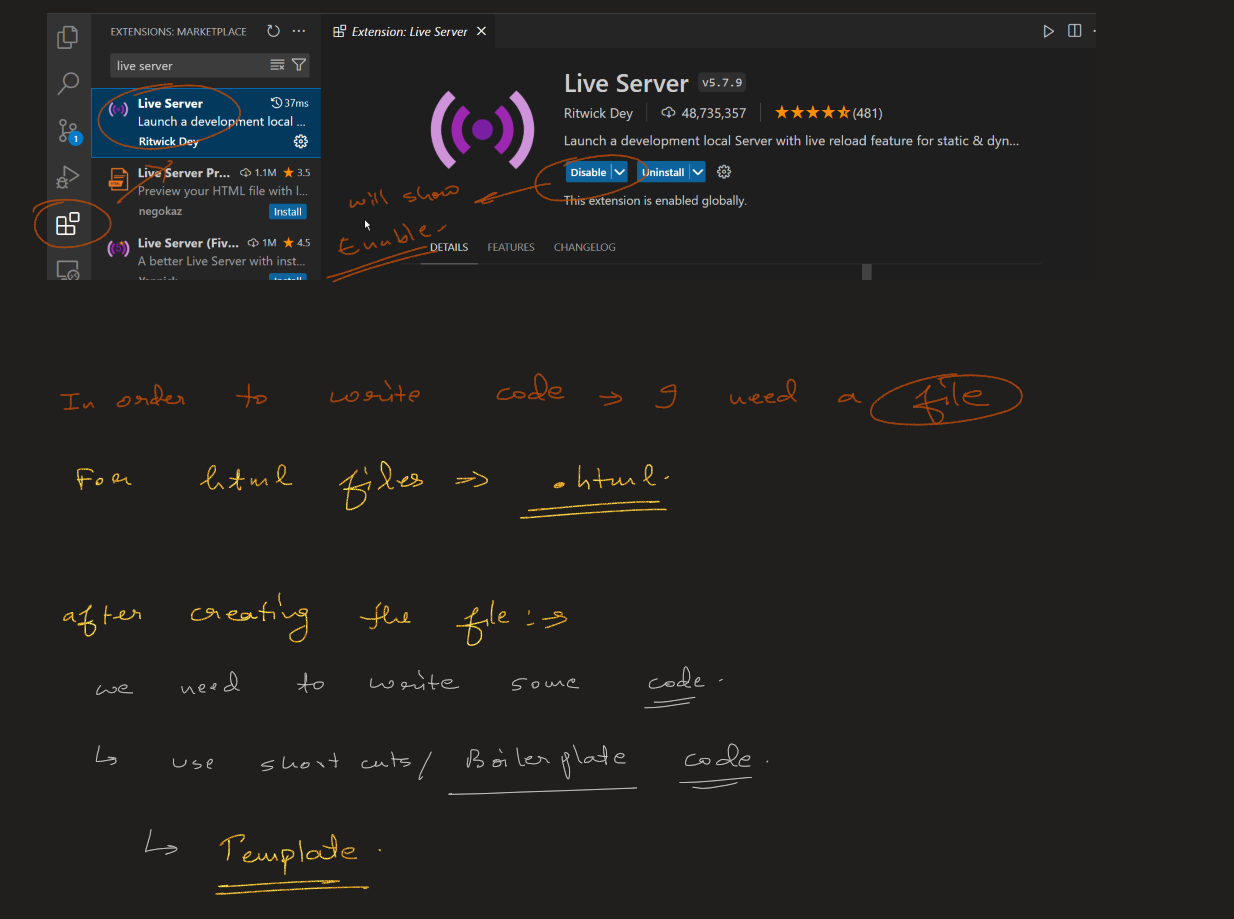 EXTENSIONS: MARKETPLACE
live server
Live Server 37ms
Launch a development local ...
Ritwick Dey
Live Server Pr... 1.1M ★ 3.5
Preview your HTML file with l...
negokaz Install
Live Server (Fiv... 1M ★ 4.5
A better Live Server with inst...
Install
1
Extension: Live Server
Live Server v5.7.9
Ritwick Dey 48,735,357 ★★★★★(481)
Launch a development local Server with live reload feature for static & dyn...
Disable Uninstall
This extension is enabled globally.
will show
Enable
DETAILS FEATURES CHANGELOG
In order to write code → I need a file
For html files ⇒ .html.
after creating the file :→
we need to write some code.
↳ use short cuts/ Boilerplate code.
↳ Template.